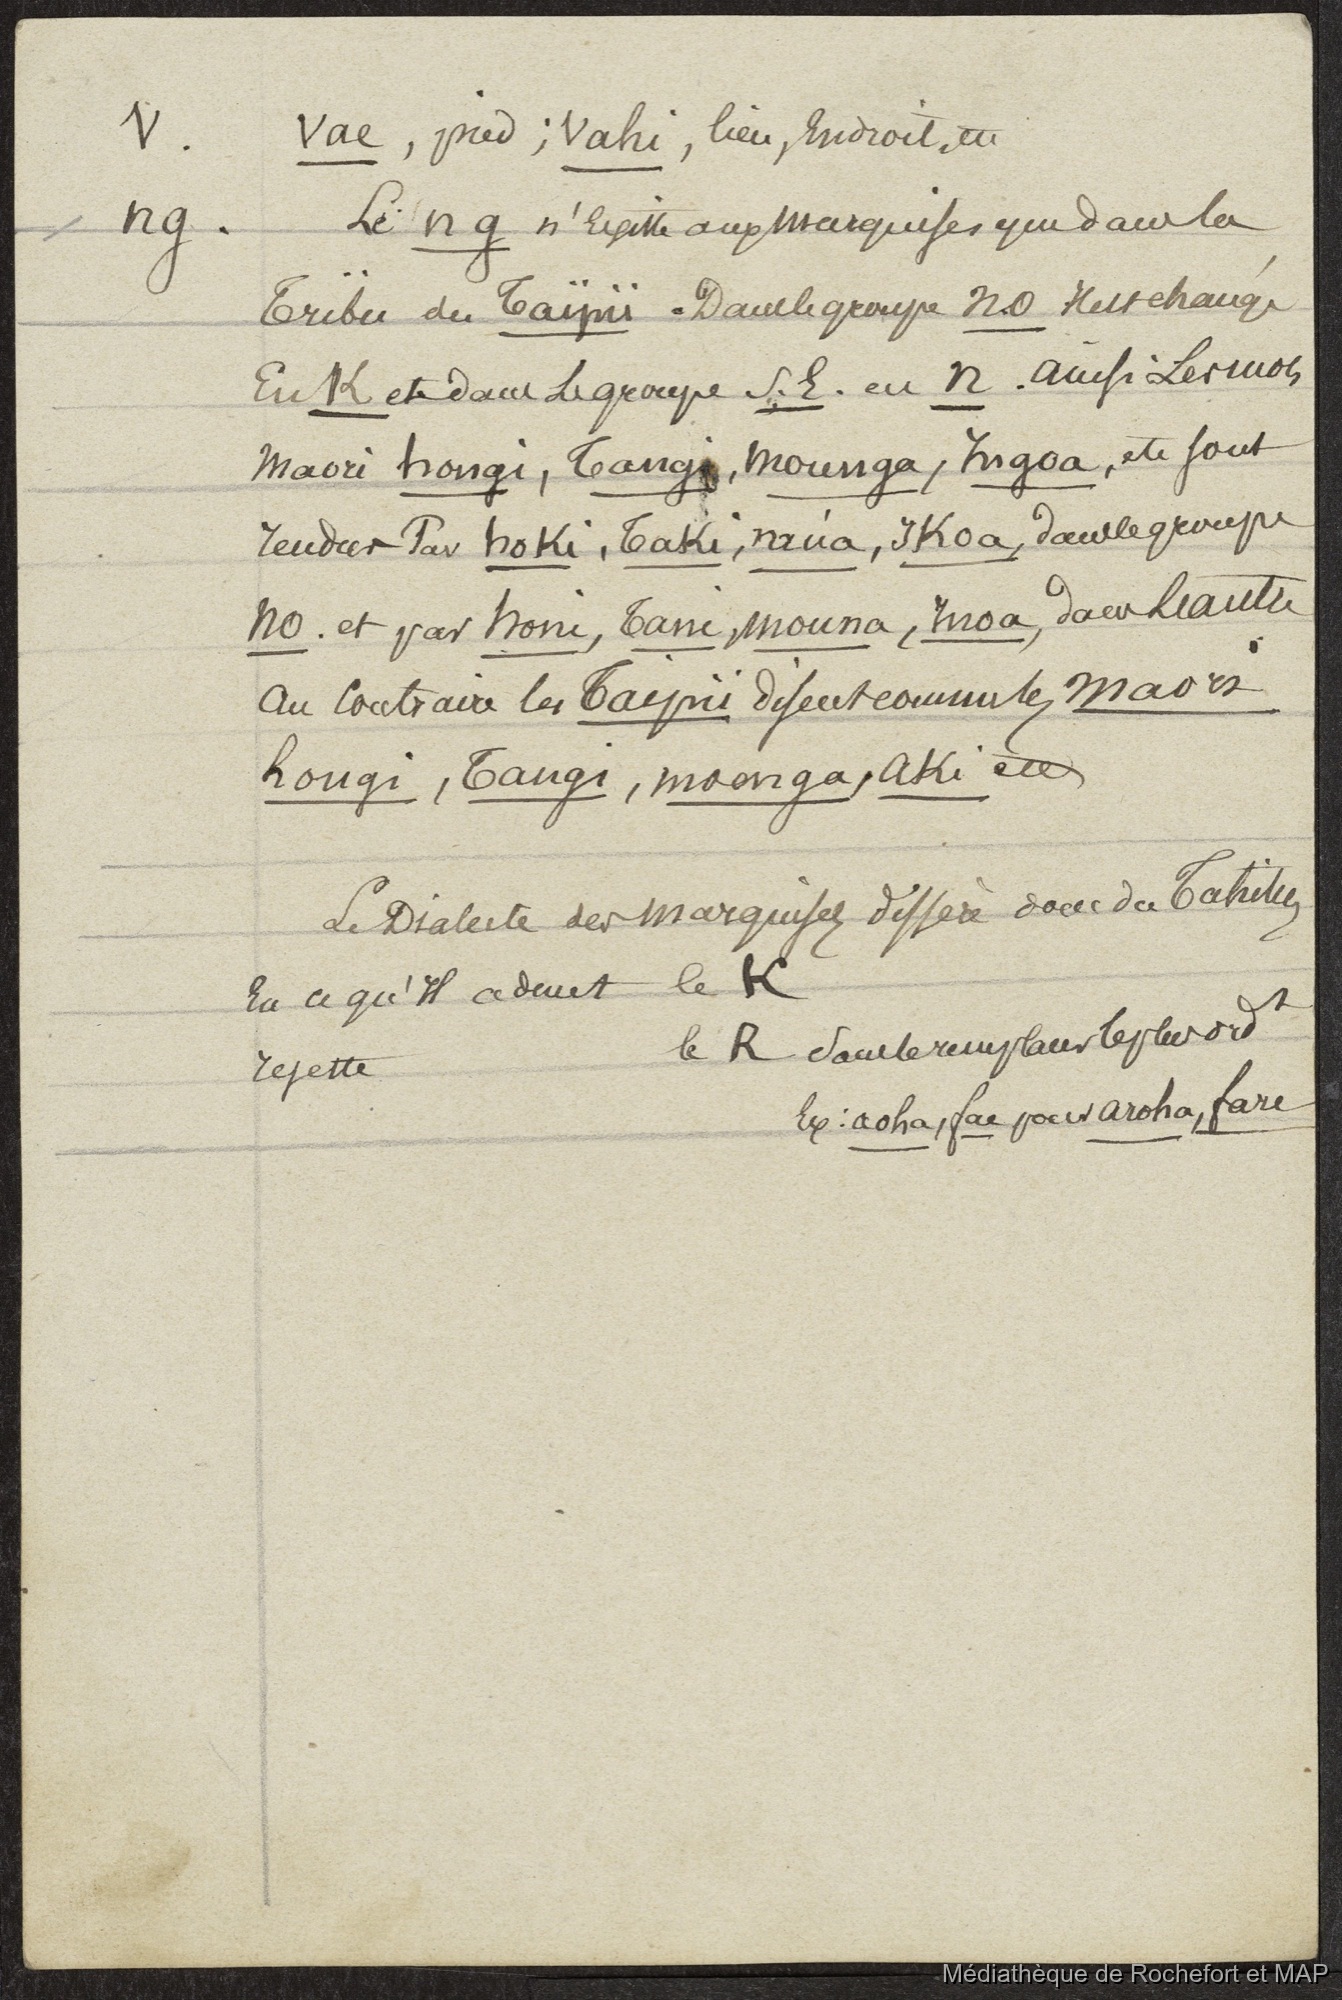 V. Vae, pied ; Vahi, lieu, Endroit, etc
ng. Le ng n'Existe aux Marquises que dans la
Tribu du Taïpii - Dans le groupe N.O Il est changé
En K et dans Le groupe S.E. en N. Ainsi Les mots
Maori hongi, Tangi, Mounga, Ingoa, etc sont
rendus Par hoki, Taki, Ikoa, dans le groupe
NO. et par honi, Tani, mouna, Inoa, dans L'autre
Au Contraire les Taipii disent comme les Maori
hongi, Tangi, moenga, aki etc
Le Dialecte des Marquises diffère donc du Tahitien
En ce qu'Il admet le K
rejette le R sans le remplacer le plus ordt
Ex : aoha, fae pour aroha, fare
Médiathèque de Rochefort et MAP